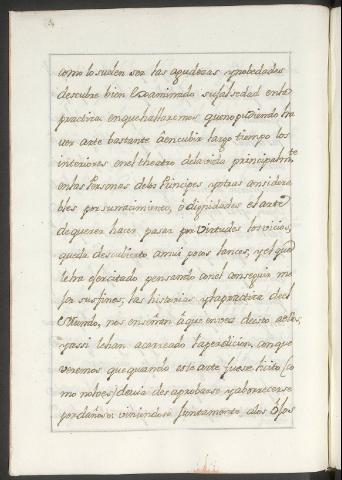 como lo suelen ser las agudezas y nobedades
descubre bien Examinado su falsedad enla
practica en que hallaremos que no pudiendo ha
ver arte bastante â encubrir largo tiempo los
interiores en el theatro de la vida principalm.te
en las Personas de los Principes y otras considera
bles por su nacimiento, ô dignidades el arte
de querer hacer pasar por Virtudes los vicios,
queda descubierto a mui pocos lances, y el que
le ha ejercitado pensando con el conseguir me
jor sus fines, las historias y la practica del
Mundo, nos enseñan â que en vez de esto
y assi le han acarreado la perdicion, con que
veremos que quando este arte fuese licito (co
mo no lo es) devia desaprobarse y aborrecerse
por dañoso, viniendose juntamente a los ojos